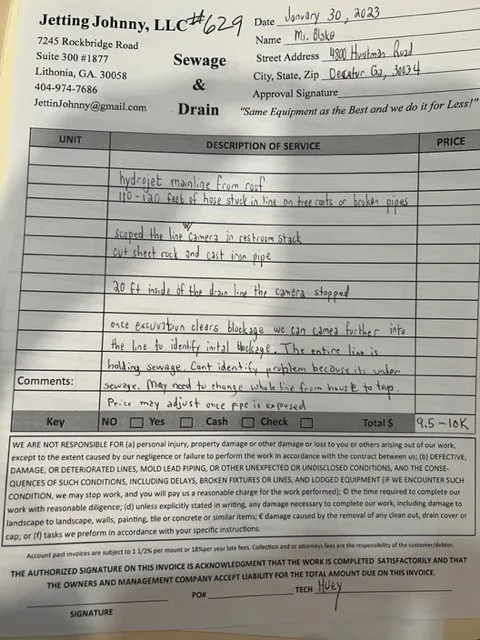 Jetting Johnny, LLC #629
7245 Rockbridge Road
Suite 300 #1877
Lithonia, GA. 30058
404-974-7686
JettinJohnny@gmail.com
Sewage
&
Drain
Date January 30, 2023
Name Ms. Blake
Street Address 4800 Huntman Road
City, State, Zip Decatur Ga, 30034
Approval Signature
"Same Equipment as the Best and we do it for Less!"
UNIT DESCRIPTION OF SERVICE PRICE
hydrojet mainline from roof
110-120 feet of hose stuck in line on tree roots or broken pipes
scoped the line w camera in restroom stack
cut sheet rock and cast iron pipe
20 ft inside of the drain line the camera stopped
once excuvation clears blockage we can camea further into
the line to identify inital blockage. The entire line is
holding sewage. Cant identify problem because its under
Comments: sewage. May need to change whole line from house to tap.
Price may adjust once pipe is exposed
Key NO Yes Cash Check Total $ 9.5-10K
WE ARE NOT RESPONSIBLE FOR (a) personal injury, property damage or other damage or loss to you or others arising out of our work,
except to the extent caused by our negligence or failure to perform the work in accordance with the contract between us; (b) DEFECTIVE,
DAMAGE, OR DETERIORATED LINES, MOLD LEAD PIPING, OR OTHER UNEXPECTED OR UNDISCLOSED CONDITIONS, AND THE CONSE-
QUENCES OF SUCH CONDITIONS, INCLUDING DELAYS, BROKEN FIXTURES OR LINES, AND LODGED EQUIPMENT (IF WE ENCOUNTER SUCH
CONDITION, we may stop work, and you will pay us a reasonable charge for the work performed); © the time required to complete our
work with reasonable diligence; (d) unless explicitly stated in writing, any damage necessary to complete our work, including damage to
landscape to landscape, walls, painting, tile or concrete or similar items; € damage caused by the removal of any clean out, drain cover or
cap; or (f) tasks we preform in accordance with your specific instructions.
Account past invoices are subject to 1 1/2% per mount or 18%per year late fees. Collection and or attorneys fees are the responsibility of the customer/debtor.
THE AUTHORIZED SIGNATURE ON THIS INVOICE IS ACKNOWLEDGMENT THAT THE WORK IS COMPLETED SATISFACTORILY AND THAT
THE OWNERS AND MANAGEMENT COMPANY ACCEPT LIABILITY FOR THE TOTAL AMOUNT DUE ON THIS INVOICE.
PO# TECH Huey
SIGNATURE